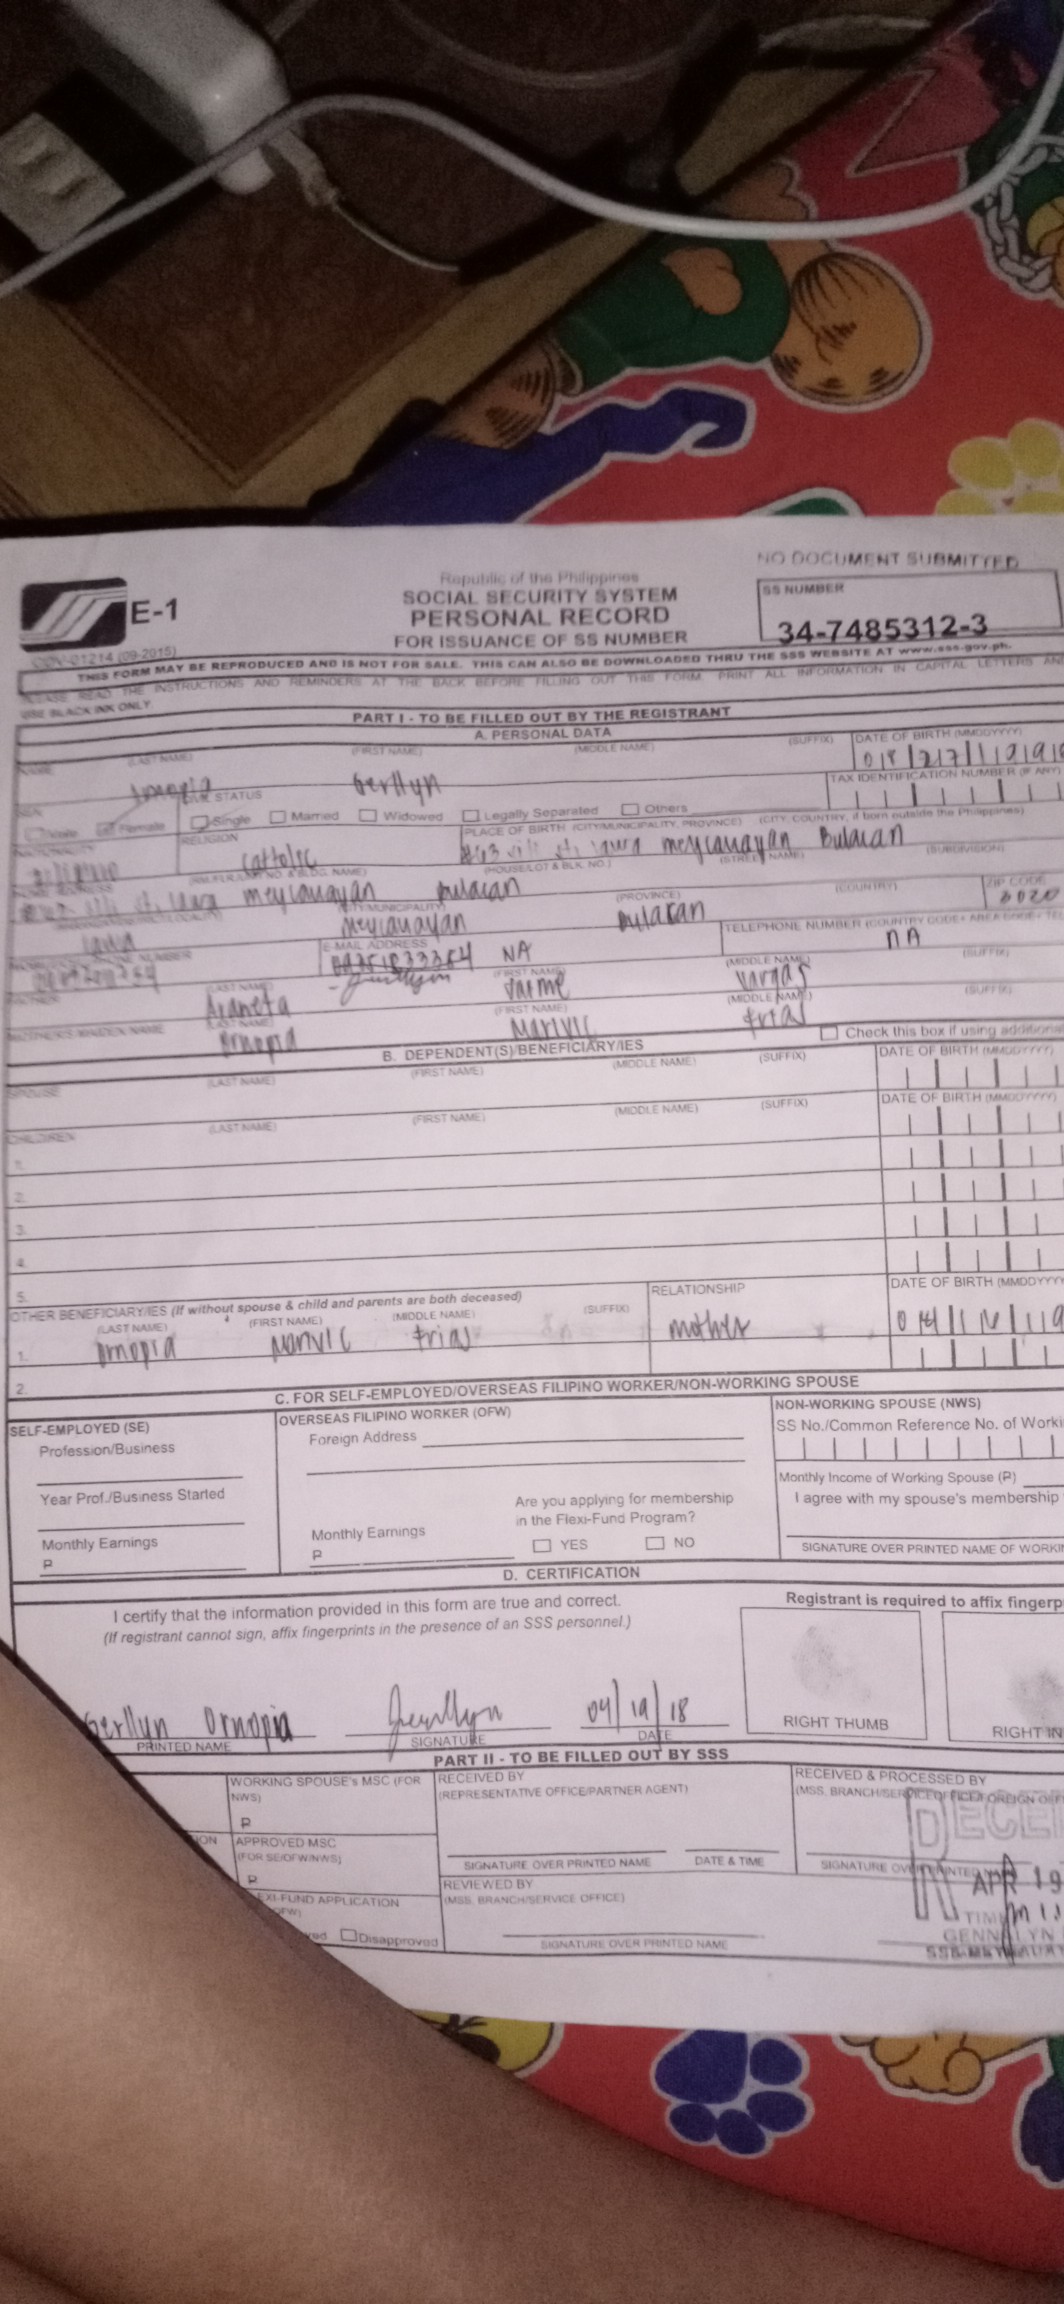 NO DOCUMENT SUBMITTED
Republic of the Philippines
SOCIAL SECURITY SYSTEM
PERSONAL RECORD
FOR ISSUANCE OF SS NUMBER
E-1
COV-01214 (09-2015)
SS NUMBER
34-7485312-3
THIS FORM MAY BE REPRODUCED AND IS NOT FOR SALE. THIS CAN ALSO BE DOWNLOADED THRU THE SSS WEBSITE AT www.sss.gov.ph.
PLEASE READ THE INSTRUCTIONS AND REMINDERS AT THE BACK BEFORE FILLING OUT THIS FORM. PRINT ALL INFORMATION IN CAPITAL LETTERS AND
USE BLACK INK ONLY.
PART I - TO BE FILLED OUT BY THE REGISTRANT
A. PERSONAL DATA
NAME (LAST NAME) (FIRST NAME) (MIDDLE NAME) (SUFFIX) DATE OF BIRTH (MMDDYYYY)
Gerllyn
TAX IDENTIFICATION NUMBER (IF ANY)
SEX CIVIL STATUS
Male Female Single Married Widowed Legally Separated Others
RELIGION PLACE OF BIRTH (CITY/MUNICIPALITY, PROVINCE) (CITY, COUNTRY, if born outside the Philippines)
Cattolic meycauayan Bulacan
(HOUSE/LOT & BLK. NO.) (STREET NAME) (SUBDIVISION)
meycauayan bulacan
(CITY/MUNICIPALITY) (PROVINCE) (COUNTRY) ZIP CODE
Meycauayan bulacan 3020
E-MAIL ADDRESS TELEPHONE NUMBER (COUNTRY CODE+ AREA CODE+ TEL
NA NA
(LAST NAME) (FIRST NAME) (MIDDLE NAME) (SUFFIX)
Araneta Jaime Vargas
MOTHER'S MAIDEN NAME (LAST NAME) (FIRST NAME) (MIDDLE NAME) (SUFFIX)
Ornopia Marivic Frias
Check this box if using additional
B. DEPENDENT(S)/BENEFICIARY/IES
SPOUSE (LAST NAME) (FIRST NAME) (MIDDLE NAME) (SUFFIX) DATE OF BIRTH (MMDDYYYY)
CHILDREN (LAST NAME) (FIRST NAME) (MIDDLE NAME) (SUFFIX) DATE OF BIRTH (MMDDYYYY)
1.
2.
3.
4.
5.
OTHER BENEFICIARY/IES (If without spouse & child and parents are both deceased) RELATIONSHIP DATE OF BIRTH (MMDDYYYY
(LAST NAME) (FIRST NAME) (MIDDLE NAME) (SUFFIX)
1. Ornopia Marivic Frias mother
2.
C. FOR SELF-EMPLOYED/OVERSEAS FILIPINO WORKER/NON-WORKING SPOUSE
SELF-EMPLOYED (SE)
Profession/Business
Year Prof./Business Started
Monthly Earnings
P
OVERSEAS FILIPINO WORKER (OFW)
Foreign Address
Monthly Earnings
P
Are you applying for membership
in the Flexi-Fund Program?
YES NO
NON-WORKING SPOUSE (NWS)
SS No./Common Reference No. of Worki
Monthly Income of Working Spouse (P)
I agree with my spouse's membership
SIGNATURE OVER PRINTED NAME OF WORKI
D. CERTIFICATION
I certify that the information provided in this form are true and correct.
(If registrant cannot sign, affix fingerprints in the presence of an SSS personnel.)
Registrant is required to affix fingerp
Gerllyn Ornopia Gerllyn 04/19/18
PRINTED NAME SIGNATURE DATE
RIGHT THUMB RIGHT IN
PART II - TO BE FILLED OUT BY SSS
WORKING SPOUSE's MSC (FOR
NWS)
P
APPROVED MSC
(FOR SE/OFW/NWS)
P
EXI-FUND APPLICATION
OFW)
ved Disapproved
RECEIVED BY
(REPRESENTATIVE OFFICE/PARTNER AGENT)
SIGNATURE OVER PRINTED NAME DATE & TIME
REVIEWED BY
(MSS, BRANCH/SERVICE OFFICE)
SIGNATURE OVER PRINTED NAME
RECEIVED & PROCESSED BY
(MSS, BRANCH/SERVICE OFFICE/FOREIGN OFFI
SIGNATURE OVER PRINTED
APR 19